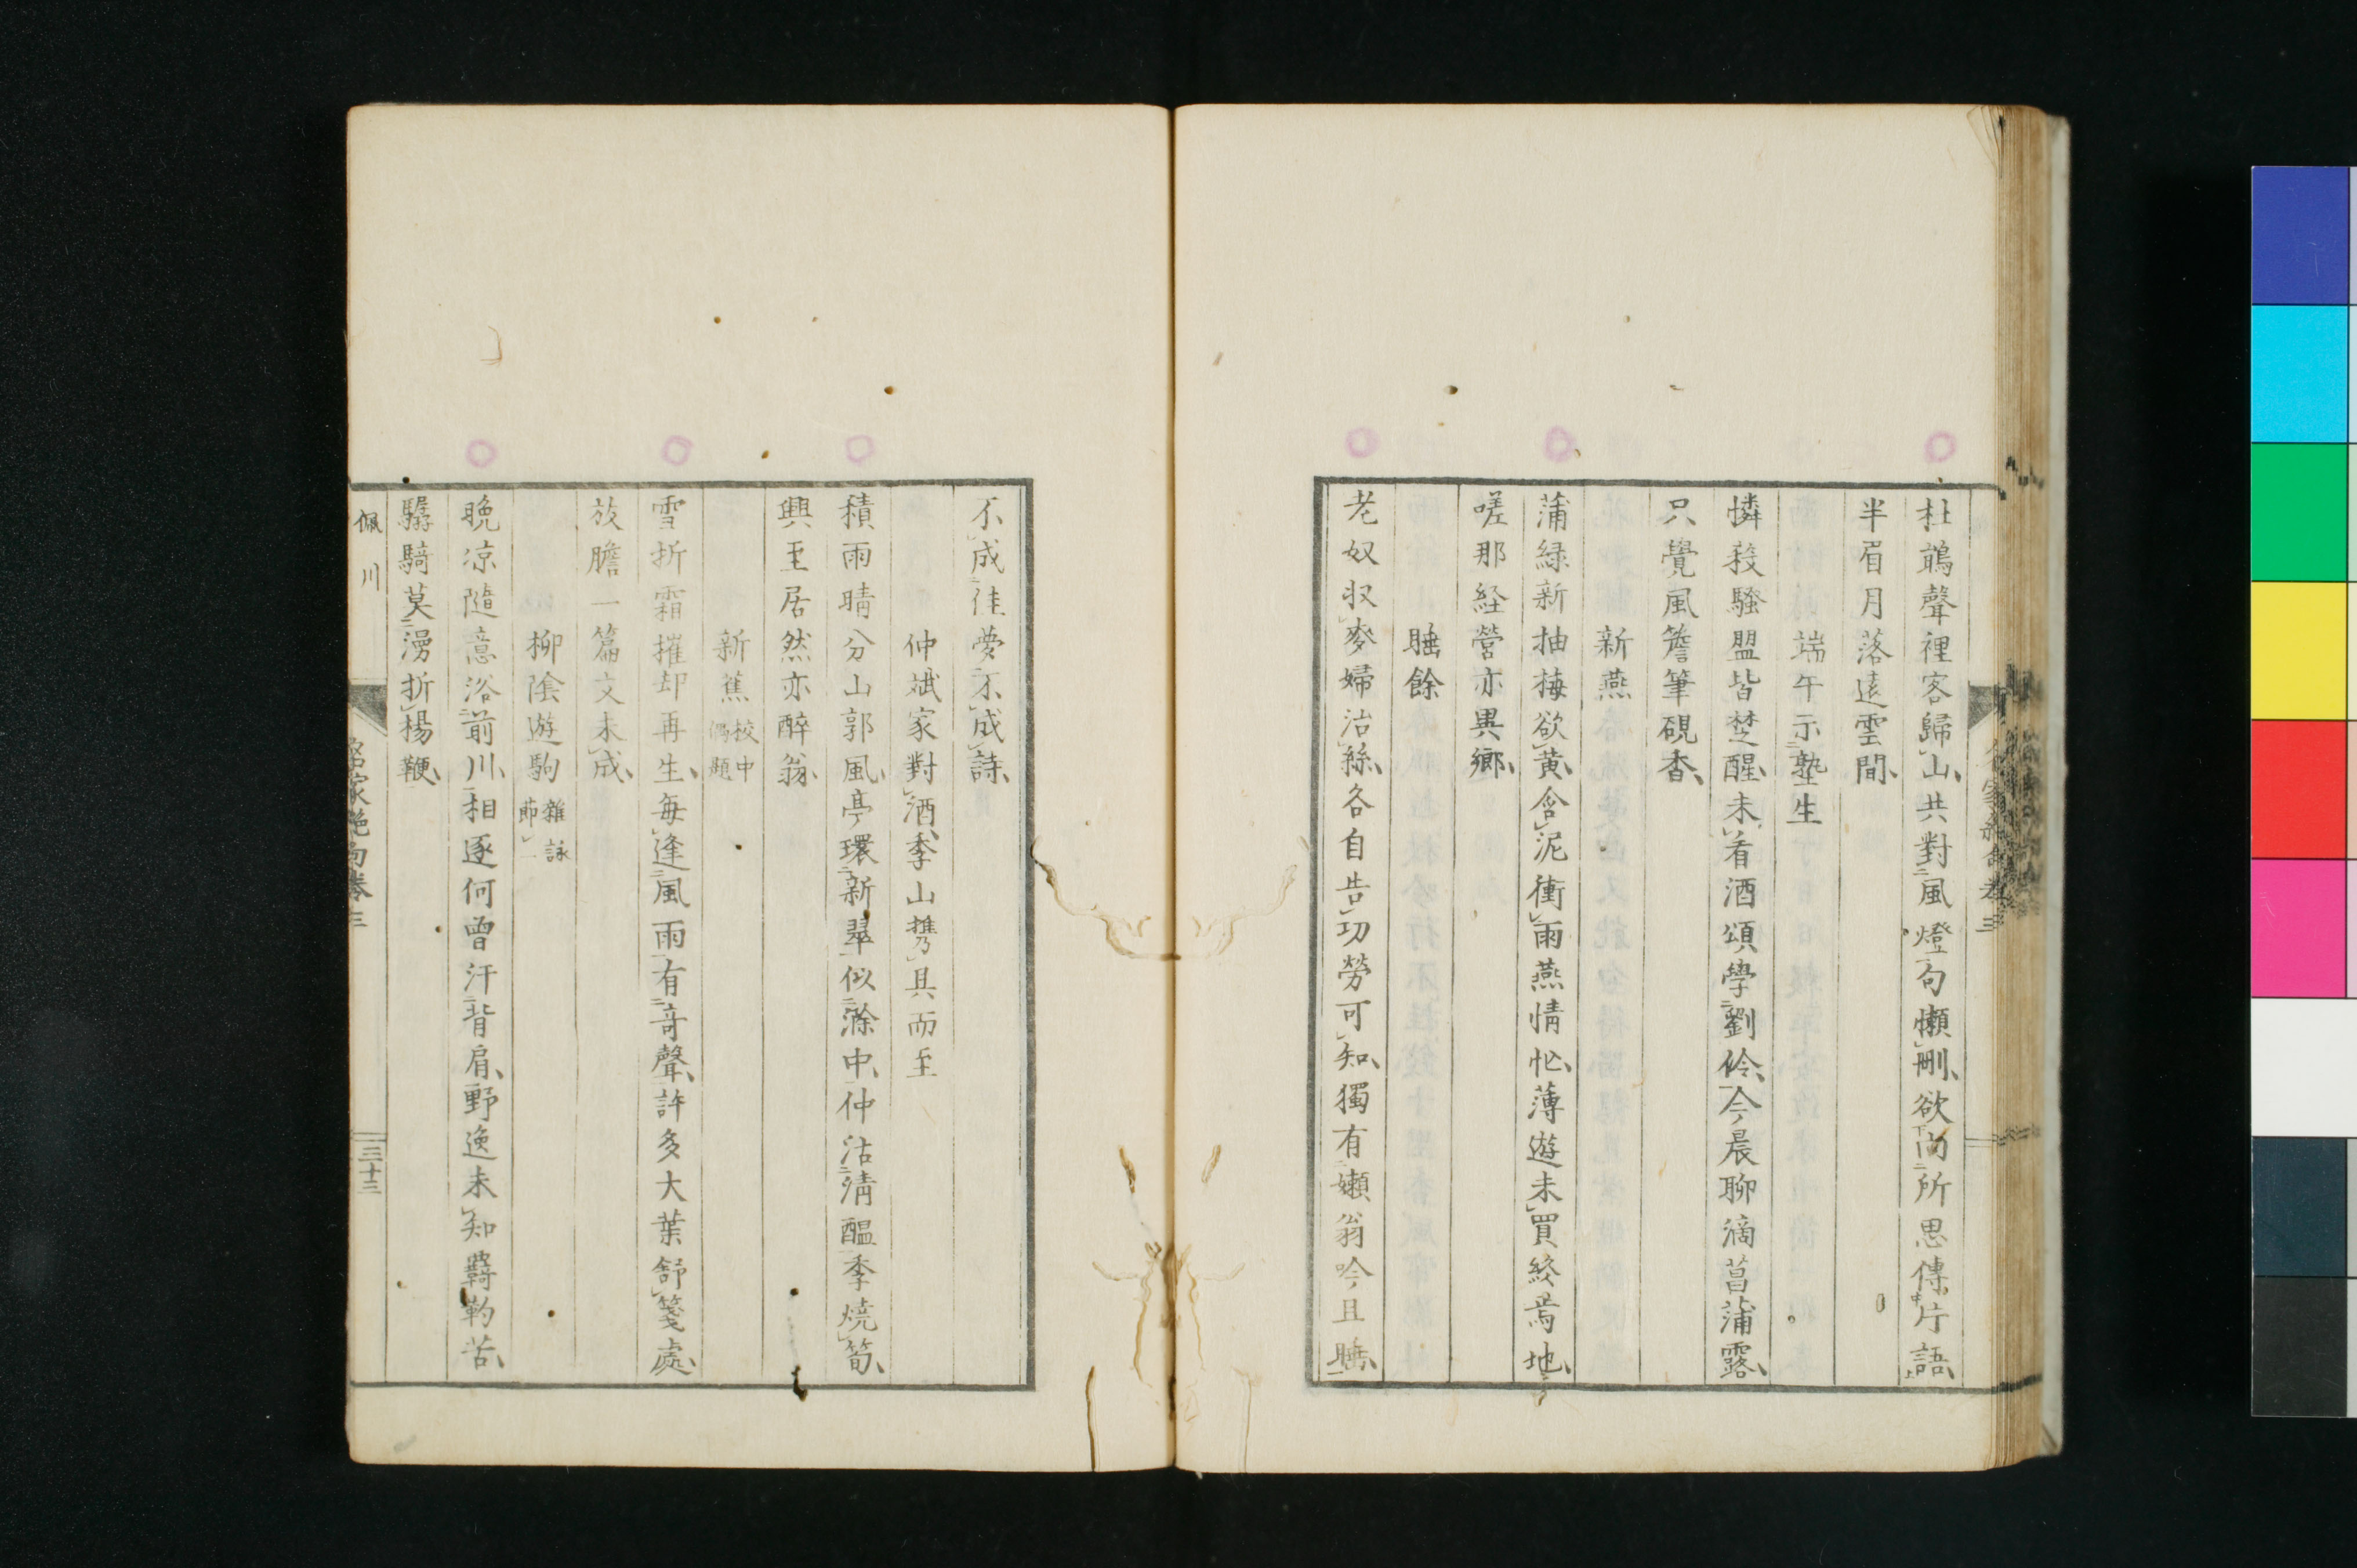 杜鵑聲裡客歸山、共對風燈句懶刪、欲向所思傳片語、
半眉月落遠雲間、
端午示塾生
憐我騷盟皆楚醒、未着酒頌學劉伶、今晨聊滴菖蒲露、
只覺風簷筆硯香、
新燕
蒲綠新抽梅欲黄、含泥衝雨燕情忙、薄遊未買終焉地、
嗟那経營亦異鄉、
睡餘
老奴収麥婦治絲、各自告功勞可知、獨有嬾翁吟且睡、
不成佳夢不成詩、
仲斌家對酒、季山携乃具而至
積雨晴分山郭風、亭環新翠似滁中、仲沽淸醞季燒筍、
興至居然亦醉翁、
新蕉 校中偶題
雪折霜摧却再生、每逢風雨有奇聲、許多大葉舒箋處、
放膽一篇文未成、
柳陰遊駒 雜詠節一
晩凉隨意浴前川、相逐何曾汗背肩、野逸未知羇靮苦、
驕騎莫漫折楊鞭、
佩川
名家絶句卷三
三十三